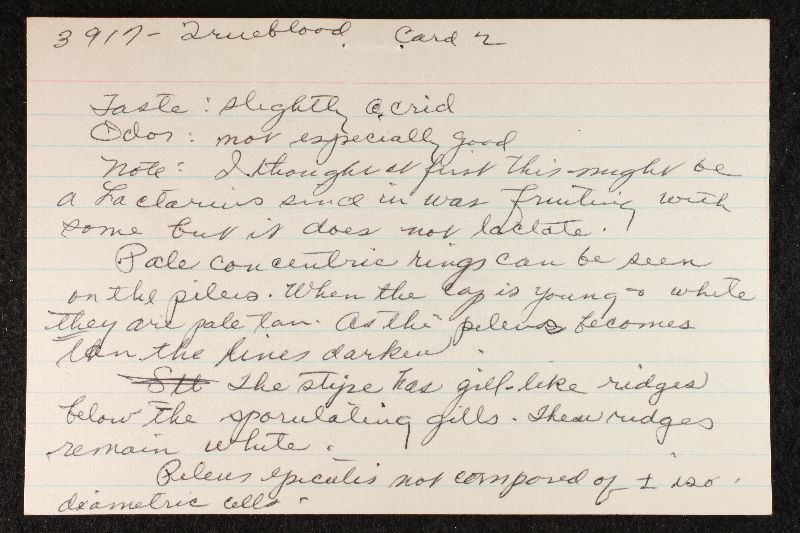 3917- Trueblood Card 2
Taste: slightly acrid
Odor: not especially good
Note: I thought at first this might be
a Lactarius since in was fruiting with
some but it does not lactate.
Pale concentric rings can be seen
on the pileus. When the cap is young & white
they are pale tan. As the pileus becomes
tan the lines darken.
The stipe has gill-like ridges
below the sporulating gills. These ridges
remain white.
Pileus epicutis not composed of ± iso
diametric cells.